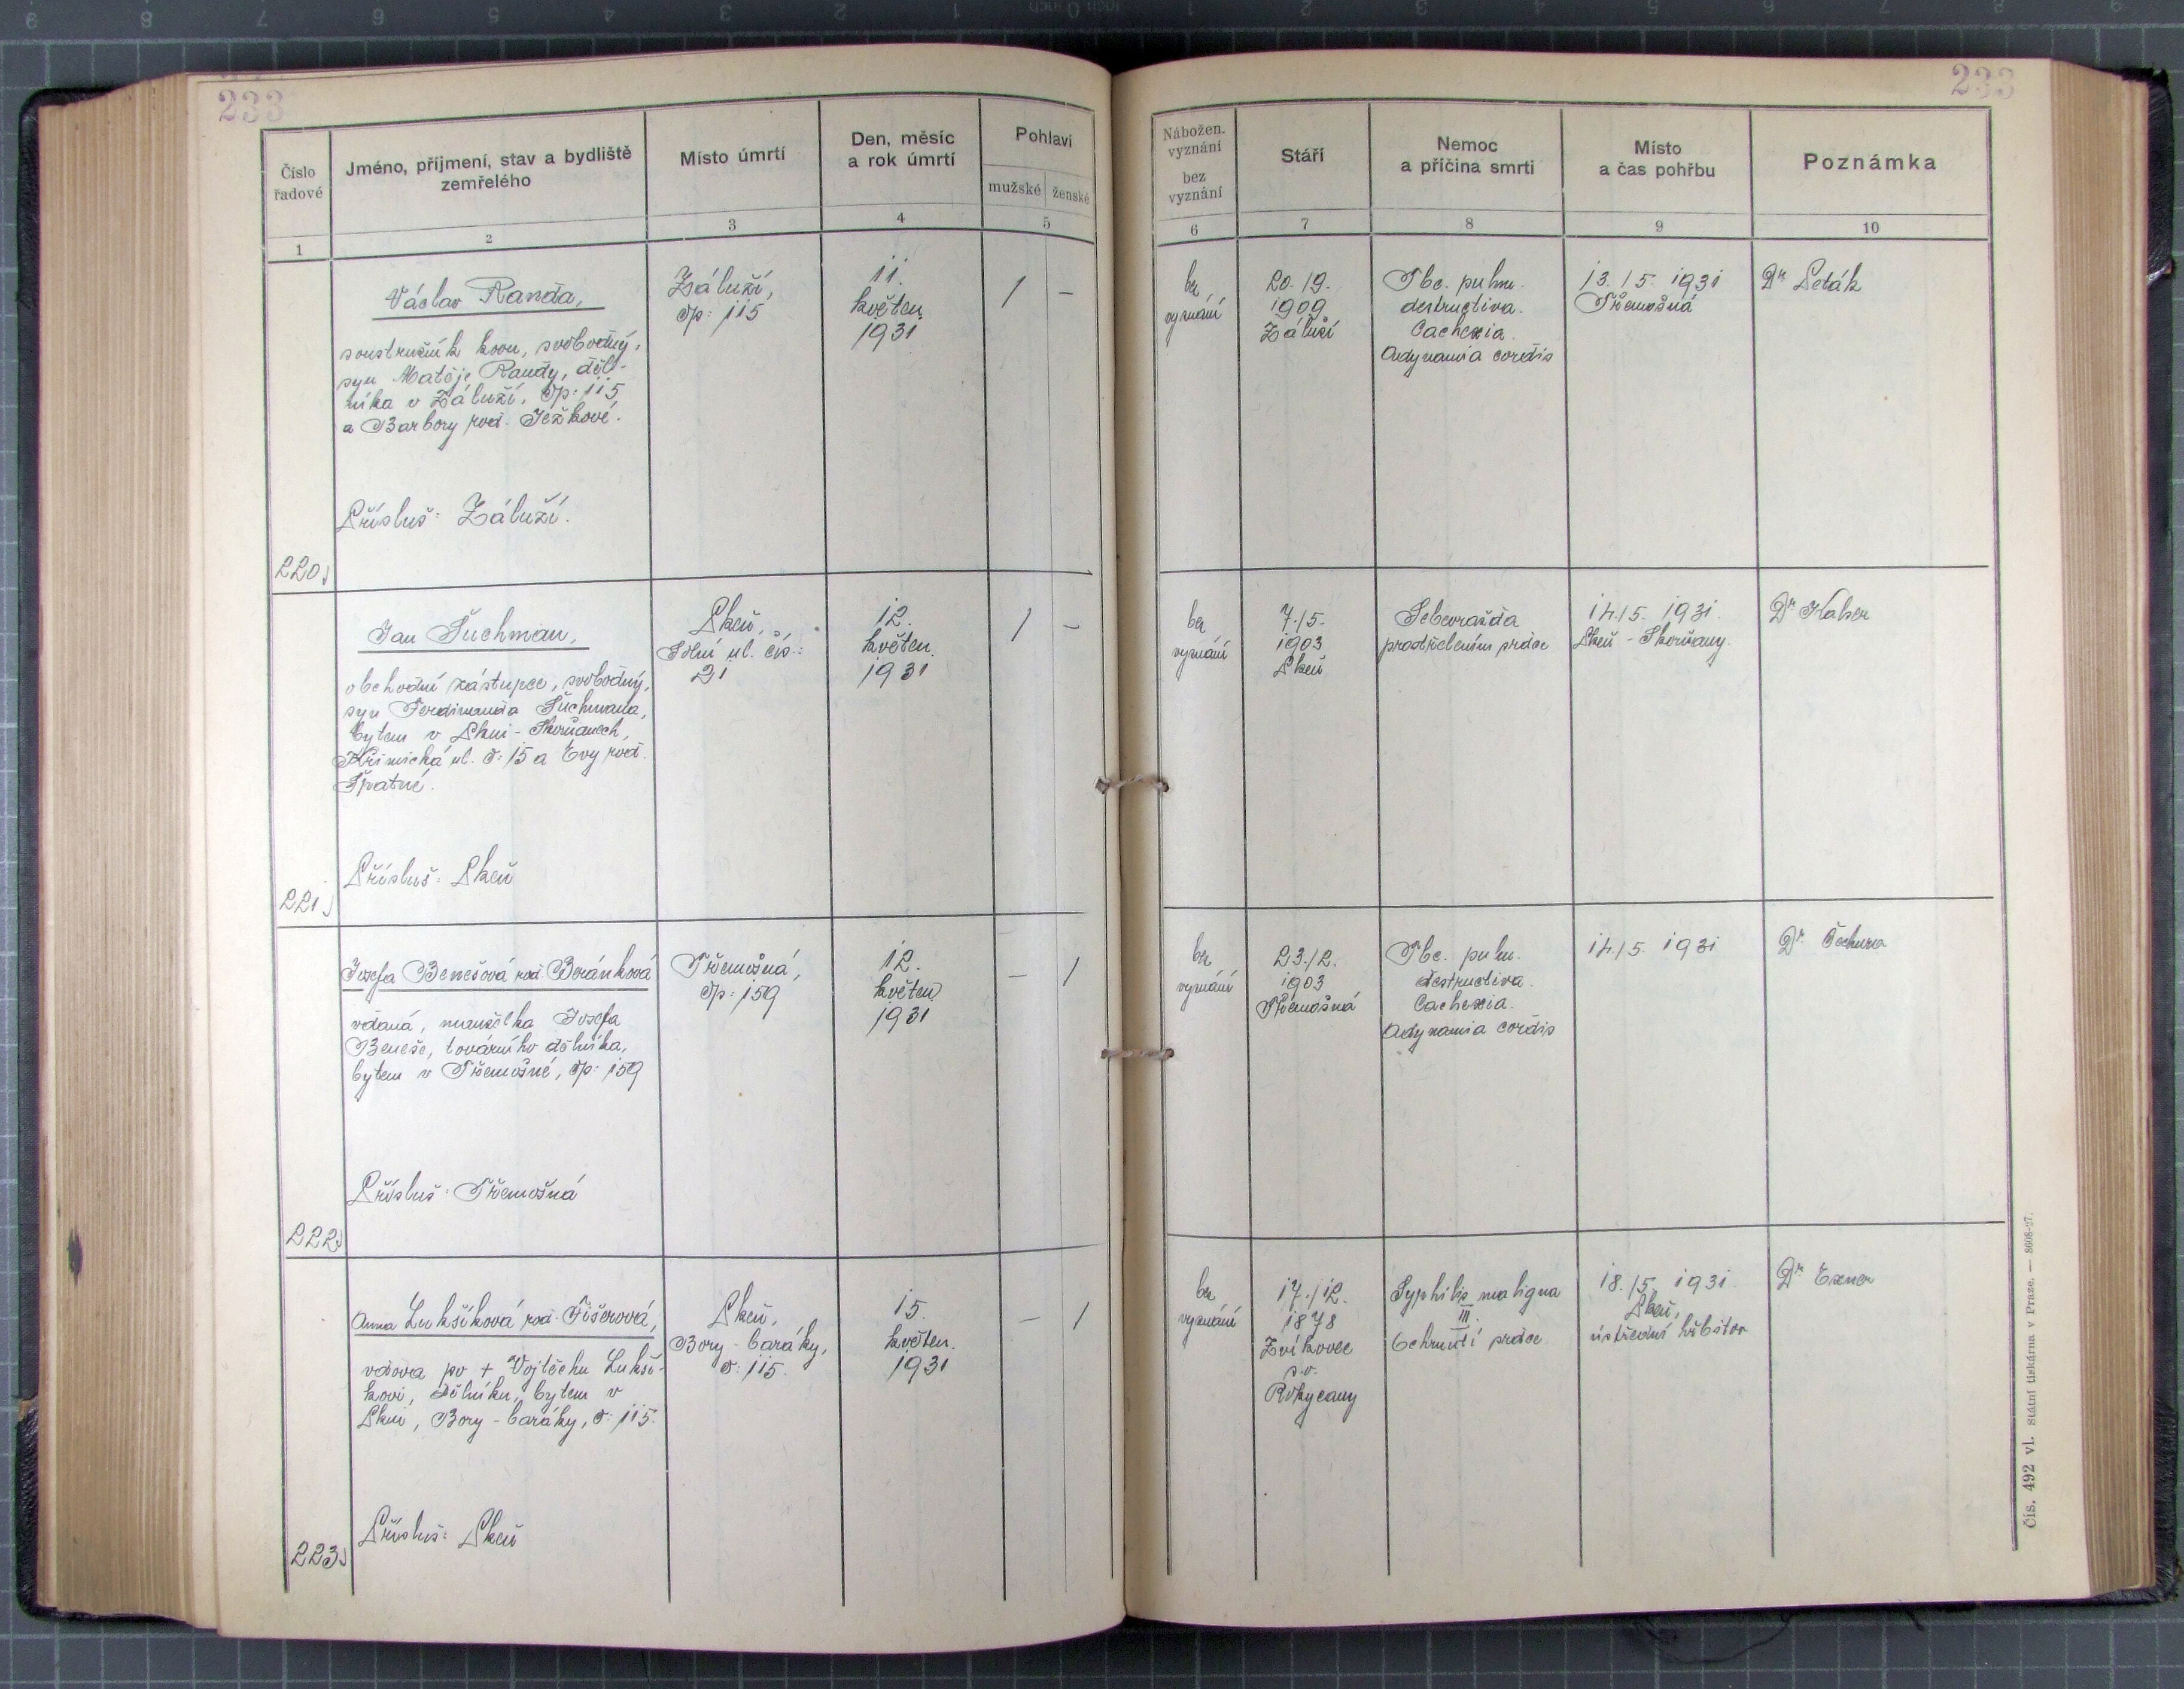 233
Číslo
řadové
Jméno, příjmení, stav a bydliště
zemřelého
Místo úmrtí
Den, měsíc
a rok úmrtí
Pohlaví
mužské
ženské
1
2
3
4
5
Václav Randa,
soustružník kovu, svobodný,
syn Matěje Randy, děl-
níka v Záluží, čp: 115
a Barbory rod. Ježkové.
Přísluš: Záluží.
220
Záluží,
čp: 115
11.
květen
1931
1
–
Jan Šuchman,
obchodní zástupce, svobodný,
syn Ferdinanda Šuchmana,
bytem v Plzni - Skvrňanech,
Křimická ul. č: 15 a Evy rod.
Špatné.
Přísluš: Plzeň
221
Plzeň,
ul. čís.:
21
12.
květen.
1931
1
–
Josefa Benešová rod. Beránková
vdaná, manželka Josefa
Beneše, továrního dělníka,
bytem v Třemošné, čp: 159
Přísluš: Třemošná
222
Třemošná,
čp: 159
12.
květen
1931
–
1
Anna Lukšíková rod. Fišerová,
vdova po + Vojtěchu Lukší-
kovi, dělníku, bytem v
Plzni, Bory - baráky, č: 115.
Přísluš: Plzeň
223
Plzeň,
Bory - baráky,
č: 115.
15.
květen.
1931
–
1
233
Nábožen.
vyznání
bez
vyznání
Stáří
Nemoc
a příčina smrti
Místo
a čas pohřbu
Poznámka
6
7
8
9
10
bez
vyznání
20./9.
1909
Záluží
Tbc. pulm.
destructiva.
Cachexia.
Adynamia cordis
13./5. 1931
Třemošná
Dr Leták
bez
vyznání
7./5.
1903
Plzeň
Sebevražda
prostřelením srdce
14./5. 1931.
Plzeň - Skvrňany.
Dr
bez
vyznání
23./2.
1903
Třemošná
Tbc. pulm.
destructiva.
Cachexia.
Adynamia cordis
14./5. 1931
Dr. Čechura
bez
vyznání
17./12.
1878
Zvíkovec
s.o.
Rokycany
Syphilis maligna
III.
Ochrnutí srdce
18./5. 1931.
Plzeň,
ústřední hřbitov
Dr Exner
Čís. 492 vl. Státní tiskárna v Praze. — 8608-27.